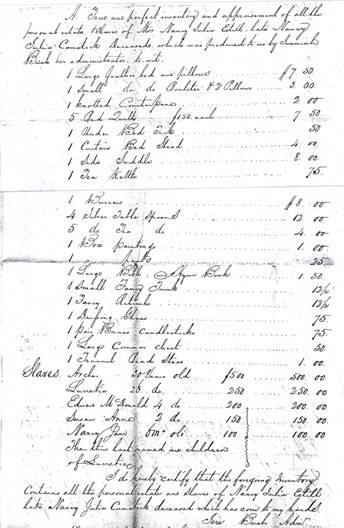 A True and perfect inventory and appraisement of all the
personal estate & slaves of Mrs Nancy Julia Estill late Nancy
Julia Deceased, which was produced to us by
Bush her administrator to wit.
1 Large feather bed and pillows $7 50
1 Small do do Bolster & 2 Pillows 3 00
1 Knotted Counterpane 2 00
5 Bed Quilts $1.50 each 7 50
1 Under Bed Tick 50
1 Curtain Bed Stead 4.00
1 Side Saddle 8.00
1 Tea Kettle 75
1 Bureau $8.00
4 Silver Table Spoons 12.00
5 do Tea do 4.00
1 Box paintings 1.00
1 25
1 Large Bible Hymn Book 1.50
1 Small Fancy Trunk 12½
1 Fancy 12½
1 Glass 75
1 pair Brass Candlesticks 75
1 Large Common chest 50
1 and 1.00
Slaves. Archer 30 years old $500 500 00
Lucretia 26 do 250 250.00
Edwin McDonald 4 do 200 200.00
Susan Anne 2 do 150 150.00
Nancy Jane 6 mo old 100 100.00
The three last named are children
of Lucretia
I do hereby certify that the foregoing Inventory
Contains all the personal estate and slaves of Nancy Julia Estill
late Nancy Julia deceased which has come to my hands.
Bush Admr